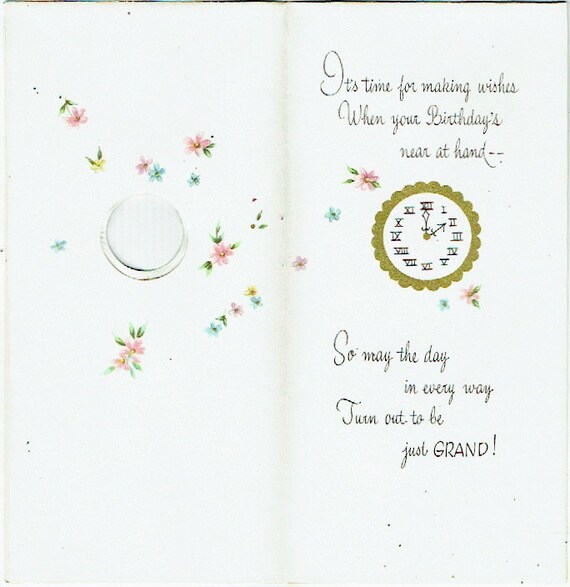 It's time for making wishes
When your Birthday's
near at hand--
XII
I
II
III
IV
V
VI
VII
VIII
IX
X
XI
So may the day
in every way
Turn out to be
just GRAND!